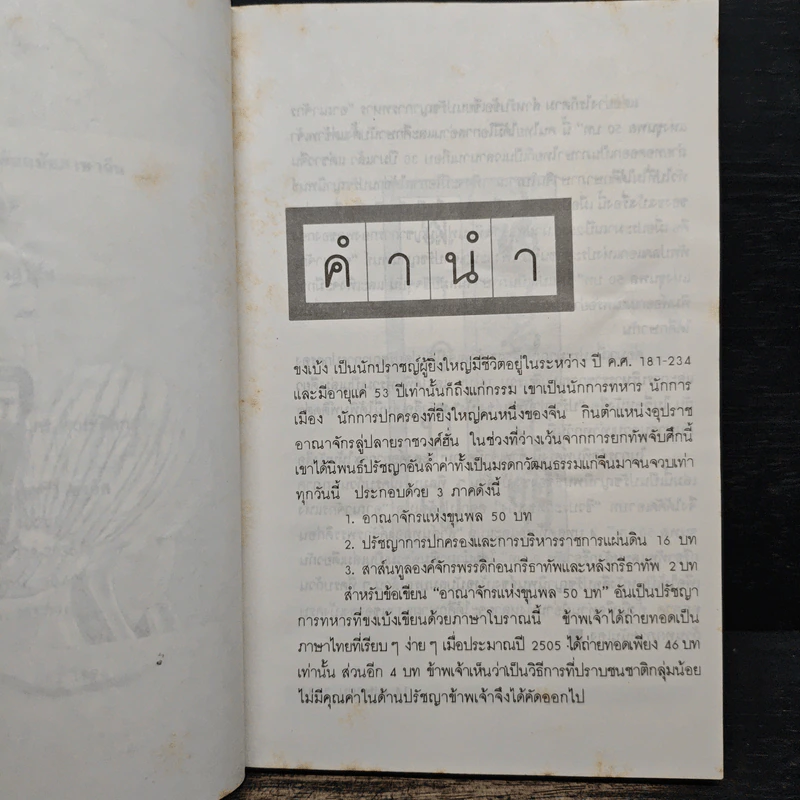 คำนำ
ขงเบ้ง เป็นนักปราชญ์ผู้ยิ่งใหญ่มีชีวิตอยู่ในระหว่าง ปี ค.ศ. 181-234
และมีอายุแค่ 53 ปีเท่านั้นก็ถึงแก่กรรม เขาเป็นนักการทหาร นักการ
เมือง นักการปกครองที่ยิ่งใหญ่คนหนึ่งของจีน กินตำแหน่งอุปราช
อาณาจักรลู่ปลายราชวงศ์ฮั่น ในช่วงที่ว่างเว้นจากการยกทัพจับศึกนี้
เขาได้นิพนธ์ปรัชญาอันล้ำค่าทั้งเป็นมรดกวัฒนธรรมแก่จีนมาจนจวบเท่า
ทุกวันนี้ ประกอบด้วย 3 ภาคดังนี้
1. อาณาจักรแห่งขุนพล 50 บท
2. ปรัชญาการปกครองและการบริหารราชการแผ่นดิน 16 บท
3. สาส์นทูลองค์จักรพรรดิก่อนกรีธาทัพและหลังกรีธาทัพ 2 บท
สำหรับข้อเขียน “อาณาจักรแห่งขุนพล 50 บท” อันเป็นปรัชญา
การทหารที่ขงเบ้งเขียนด้วยภาษาโบราณนี้ ข้าพเจ้าได้ถ่ายทอดเป็น
ภาษาไทยที่เรียบ ๆ ง่าย ๆ เมื่อประมาณปี 2505 ได้ถ่ายทอดเพียง 46 บท
เท่านั้น ส่วนอีก 4 บท ข้าพเจ้าเห็นว่าเป็นวิธีการที่ปราบชนชาติกลุ่มน้อย
ไม่มีคุณค่าในด้านปรัชญาข้าพเจ้าจึงได้คัดออกไป